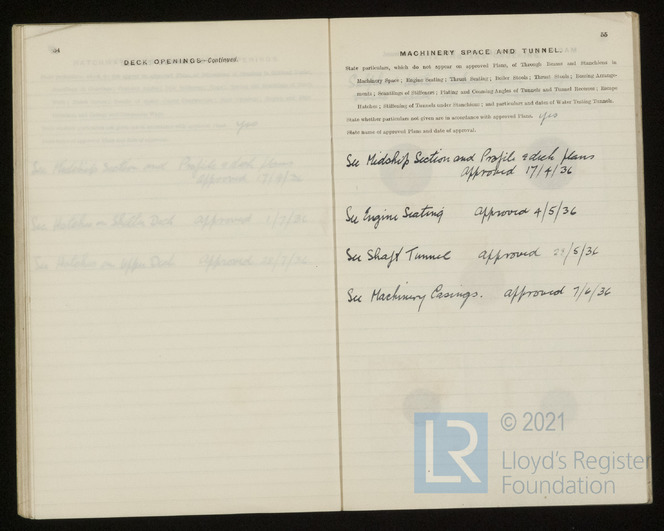 54
DECK OPENINGS—Continued.
55
MACHINERY SPACE AND TUNNEL.
State particulars, which do not appear on approved Plans, of Through Beams and Stanchions in
Machinery Space; Engine Seating; Thrust Seating; Boiler Stools; Thrust Stools; Bracing Arrange-
ments; Scantlings of Stiffeners; Plating and Coaming Angles of Tunnels and Tunnel Recesses; Escape
Hatches; Stiffening of Tunnels under Stanchions; and particulars and dates of Water Testing Tunnels.
State whether particulars not given are in accordance with approved Plans. Yes
State name of approved Plans and date of approval.
See Midship Section and Profile & deck plans
approved 17/4/36
See Engine Seating approved 4/5/36
See Shaft Tunnel approved /5/36
See Machinery Casings. approved 7/6/36
LR
© 2021
Lloyd's Register
Foundation